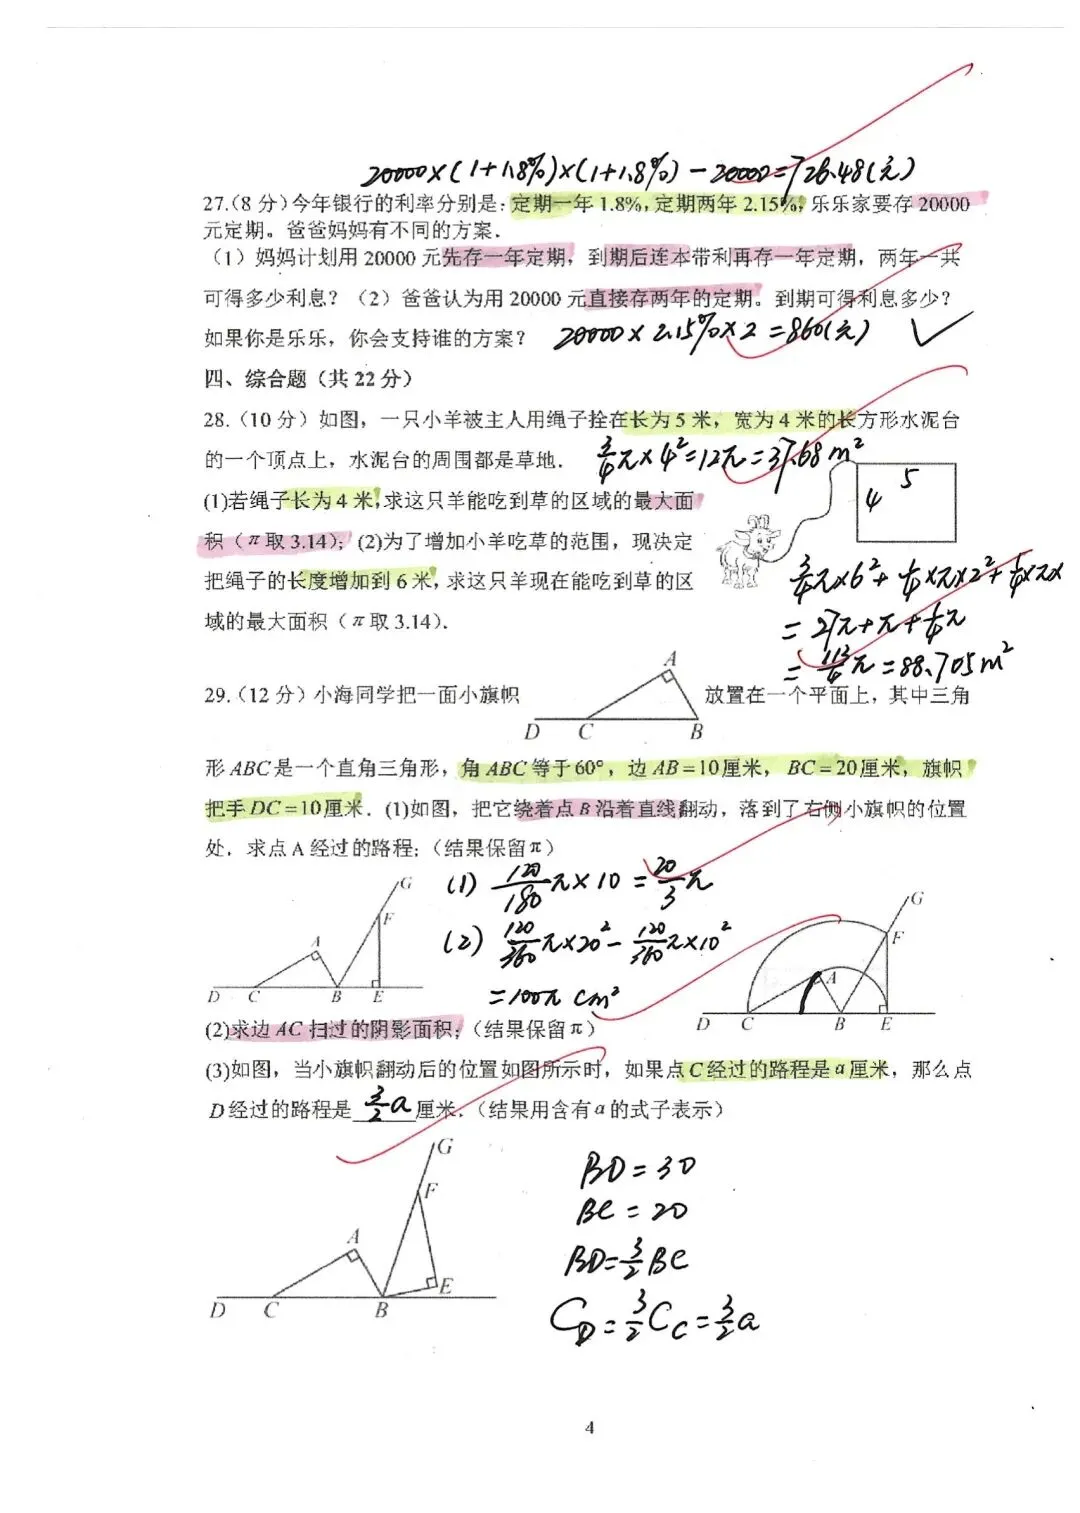 20000×(1+1.8%)×(1+1.8%)-20000=726.48(元)
27.(8分)今年银行的利率分别是:定期一年1.8%,定期两年2.15%,乐乐家要存20000
元定期。爸爸妈妈有不同的方案.
(1)妈妈计划用20000元先存一年定期,到期后连本带利再存一年定期,两年一共
可得多少利息?(2)爸爸认为用20000元直接存两年的定期。到期可得利息多少?
如果你是乐乐,你会支持谁的方案? 20000×2.15%×2=860(元)
四、综合题(共22分)
28.(10分)如图,一只小羊被主人用绳子拴在长为5米,宽为4米的长方形水泥台
的一个顶点上,水泥台的周围都是草地. 3/4π×4²=12π=37.68m²
5
4
(1)若绳子长为4米,求这只羊能吃到草的区域的最大面
积(π取3.14);(2)为了增加小羊吃草的范围,现决定
把绳子的长度增加到6米,求这只羊现在能吃到草的区
域的最大面积(π取3.14).
3/4π×6²+1/4×π×2²+1/4×π×
=27π+π+1/4π
=113/4π=88.705m²
29.(12分)小海同学把一面小旗帜 放置在一个平面上,其中三角
A
D C B
形ABC是一个直角三角形,角ABC等于60°,边AB=10厘米,BC=20厘米,旗帜
把手DC=10厘米.(1)如图,把它绕着点B沿着直线翻动,落到了右侧小旗帜的位置
处.求点A经过的路程;(结果保留π)
(1) 120/180π×10=20/3π
(2) 120/360π×20²-120/360π×10²
=100π cm²
G
F
A
D C B E
G
F
A
D C B E
(2)求边AC扫过的阴影面积;(结果保留π)
(3)如图,当小旗帜翻动后的位置如图所示时,如果点C经过的路程是a厘米,那么点
D经过的路程是3/2a厘米.(结果用含有a的式子表示)
G
F
A
E
D C B
BD=30
BC=20
BD=3/2BC
C_D=3/2C_C=3/2a
4